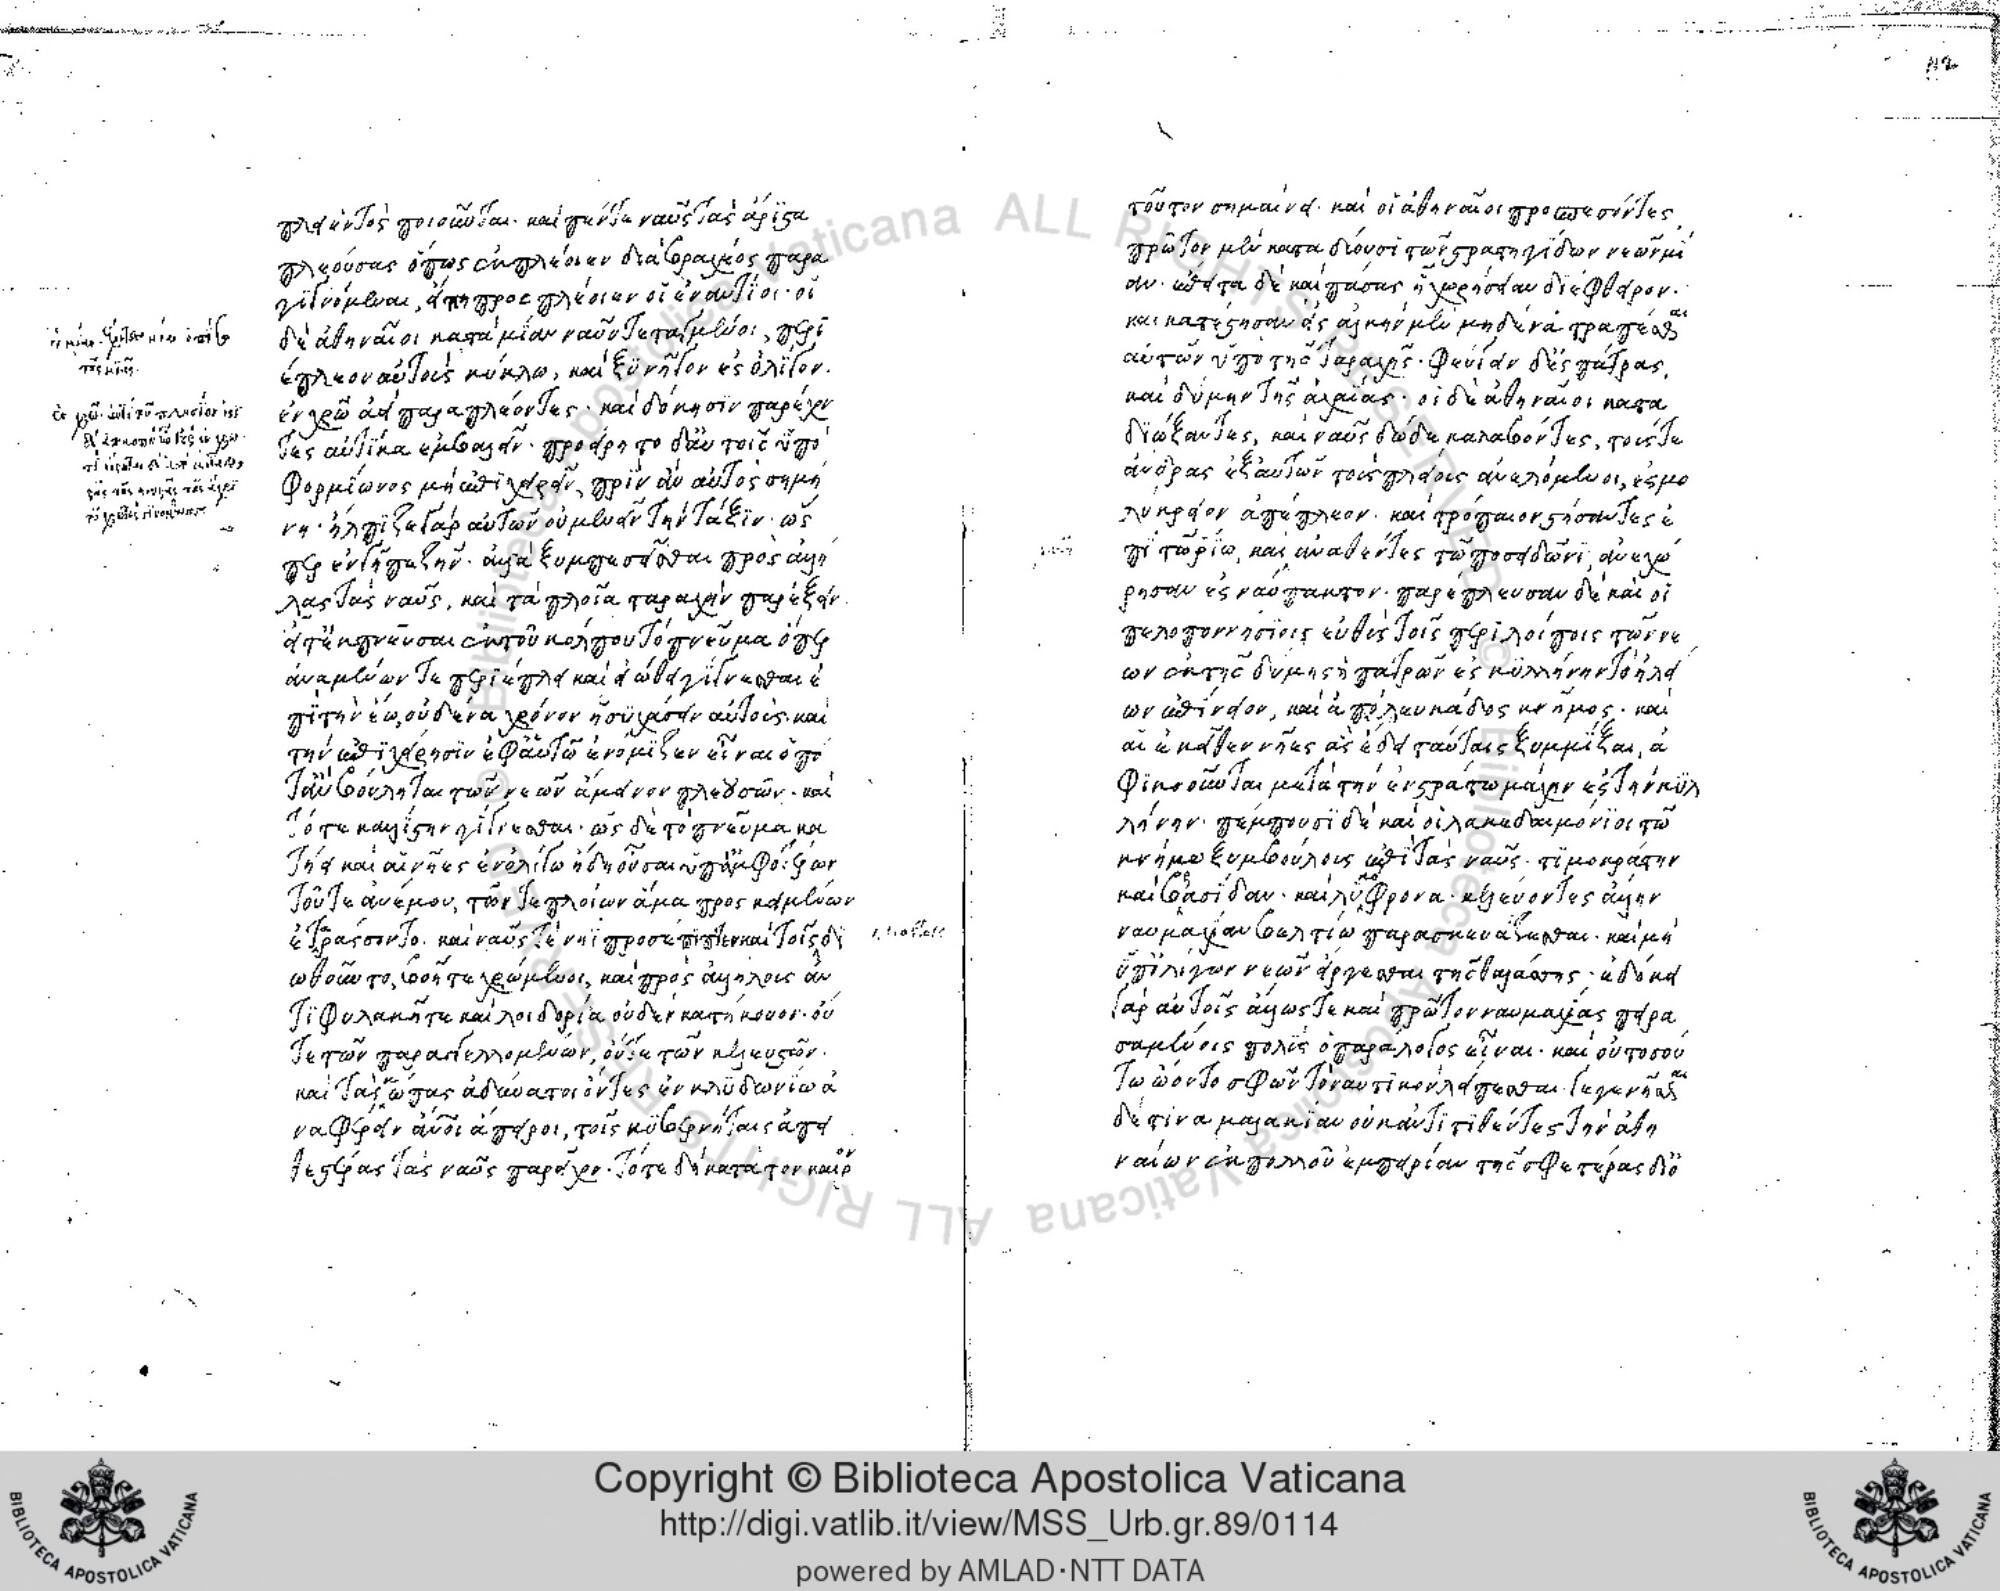 πλεύντὸς ποιοῦνται. καὶ πέντε ναῦς τὰς ἄριστα
πλεούσας ὅπως ἐκπλέοιεν διὰ βραχέος παρα
γιγνόμεναι, εἴπῃ προσπλέοιεν οἱ ἐναντίοι. οἱ
δὲ ἀθηναῖοι κατὰ μίαν ναῦν τεταγμένοι, περι
έπλεον αὐτοὺς κύκλω, καὶ ξυνῆγον ἐς ὀλίγον.
ἐν χρῶ ἀεὶ παραπλέοντες. καὶ δόκησιν παρέχον
τες αὐτίκα ἐμβαλεῖν. προείρητο δ' αὐτοῖς ὑπὸ
φορμίωνος μὴ ἐπιχειρεῖν, πρὶν ἂν αὐτὸς σημή
νη. ἤλπιζε γὰρ αὐτῶν οὐ μενεῖν τὴν τάξιν. ὥσ
περ ἐν γῇ πεζὴν. ἀλλὰ ξυμπεσεῖσθαι πρὸς ἀλλή
λας τὰς ναῦς, καὶ τὰ πλοῖα ταραχὴν παρέξειν.
εἴτ' ἐκπνεῦσαι ἐκ τοῦ κόλπου τὸ πνεῦμα ὅπερ
ἀναμένων τε περιέπλει καὶ εἰώθει γίγνεσθαι ἐ
πὶ τὴν ἕω, οὐδένα χρόνον ἡσυχάσειν αὐτούς. καὶ
τὴν ἐπιχείρησιν ἐφ' ἑαυτῶ ἐνόμιζεν εἶναι ὁπό
ταν βούληται τῶν νεῶν ἄμεινον πλεουσῶν. καὶ
τότε καλλίστην γίγνεσθαι. ὡς δὲ τὸ πνεῦμα κα
τήει καὶ αἱ νῆες ἐν ὀλίγω ἤδη οὖσαι ὑπ' ἀμφοτέρων
τοῦ τε ἀνέμου, τῶν τε πλοίων ἅμα προσκειμένων
ἐταράσσοντο. καὶ ναῦς τε νηῒ προσέπιπτεν καὶ τοῖς δι
ωθοῦντο, βοῇ τε χρώμενοι, καὶ πρὸς ἀλλήλους ἀν
τιφυλακῆ τε καὶ λοιδορία οὐδὲν κατήκουον. οὔ
τε τῶν παραγγελλομένων, οὔτε τῶν κελευστῶν.
καὶ τὰς κώπας ἀδύνατοι ὄντες ἐν κλυδωνίω ἀ
ναφέρειν ἄνοι ἄπειροι, τοῖς κυβερνήταις ἀπει
θεστέρας τὰς ναῦς παρεῖχον. τότε δὴ κατὰ τὸν καιρὸν
τοῦτον σημαίνει. καὶ οἱ ἀθηναῖοι προσπεσόντες
πρῶτον μὲν καταδύουσι τῶν στρατηγίδων νεῶν μί
αν. ἔπειτα δὲ καὶ πάσας ᾗ χωρήσειαν διέφθειρον.
καὶ κατέστησαν ἐς ἀλκὴν μὲν μηδένα τραπέσθαι
αὐτῶν ὑπὸ τῆς ταραχῆς. φεύγειν δ' ἐς πάτρας,
καὶ δύμην τῆς ἀχαίας. οἱ δὲ ἀθηναῖοι κατα
διώξαντες, καὶ ναῦς δώδεκα λαβόντες, τούς τε
ἄνδρας ἐξ αὐτῶν τοὺς πλείους ἀνελόμενοι, ἐς μο
λύκρειον ἀπέπλεον. καὶ τρόπαιον στήσαντες ἐ
πὶ τῶ ῥίω, καὶ ἀναθέντες τῶ ποσειδῶνι, ἀνεχώ
ρησαν ἐς ναύπακτον. παρέπλευσαν δὲ καὶ οἱ
πελοποννήσιοις εὐθὺς τοῖς περιλοίποις τῶν νε
ων ἐκ τῆς δύμης ἢ πατρῶν ἐς κυλλήνην τὸ ἠλεί
ων ἐπίνειον, καὶ ἀπὸ λευκάδος κνῆμος. καὶ
αἱ ἐκεῖθεν νῆες ἃς ἔδει ταύταις ξυμμῖξαι, ἀ
φικνοῦνται μετὰ τὴν ἐν στράτω μάχην ἐς τὴν κυλ
λήνην. πέμπουσι δὲ καὶ οἱ λακεδαιμόνιοι τῶ
κνήμω ξυμβούλους ἐπὶ τὰς ναῦς. τιμοκράτην
καὶ βρασίδαν. καὶ λυκόφρονα. κελεύοντες ἄλλην
ναυμαχίαν βελτίω παρασκευάζεσθαι. καὶ μὴ
ὑπ' ὀλίγων νεῶν εἴργεσθαι τῆς θαλάσσης. ἐδόκει
γὰρ αὐτοῖς ἄλλως τε καὶ πρῶτον ναυμαχίας πειρα
σαμένοις πολὺς ὁ παράλογος εἶναι. καὶ οὐ τοσού
τω ὤοντο σφῶν τὸ ναυτικὸν λείπεσθαι. γεγενῆσθαι
δέ τινα μαλακίαν οὐκ ἀντιτιθέντες τὴν ἀθη
ναίων ἐκ πολλοῦ ἐμπειρίαν τῆς σφετέρας δι' ὀ
Copyright © Biblioteca Apostolica Vaticana
http://digi.vatlib.it/view/MSS_Urb.gr.89/0114
powered by AMLAD·NTT DATA
BIBLIOTECA APOSTOLICA VATICANA
BIBLIOTECA APOSTOLICA VATICANA